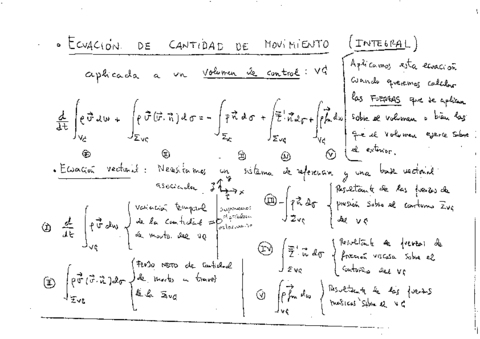 • ECUACIÓN DE CANTIDAD DE MOVIMIENTO (INTEGRAL)
aplicada a un volumen de control: VC
Aplicamos esta ecuación
cuando queremos calcular
las FUERZAS que se aplican
sobre el volumen o bien las
que el volumen ejerce sobre
el exterior.
d/dt ∫_VC ρ v⃗ dω + ∫_Σvc ρ v⃗ (v⃗·n⃗) dσ = - ∫_Σvc p n⃗ dσ + ∫_Σvc τ̿'·n⃗ dσ + ∫_VC ρ f⃗m dω
I II III IV V
• Ecuación vectorial: Necesitamos un sistema de referencia y una base vectorial
asociada.
I) d/dt ∫_VC ρ v⃗ dω { variación temporal
de la cantidad = 0
de movto. del VC
II) ∫_Σvc ρ v⃗ (v⃗·n⃗) dσ { FLUJO NETO de cantidad
de movto a través
de la Σvc
III) - ∫_Σvc p n⃗ dσ { Resultante de las fuerzas de
presión sobre el contorno Σvc
del VC
IV) ∫_Σvc τ̿'·n⃗ dσ { Resultante de fuerzas de
viscosa sobre el
contorno del VC
V) ∫_VC ρ f⃗m dω { Resultante de las fuerzas
másicas sobre el VC